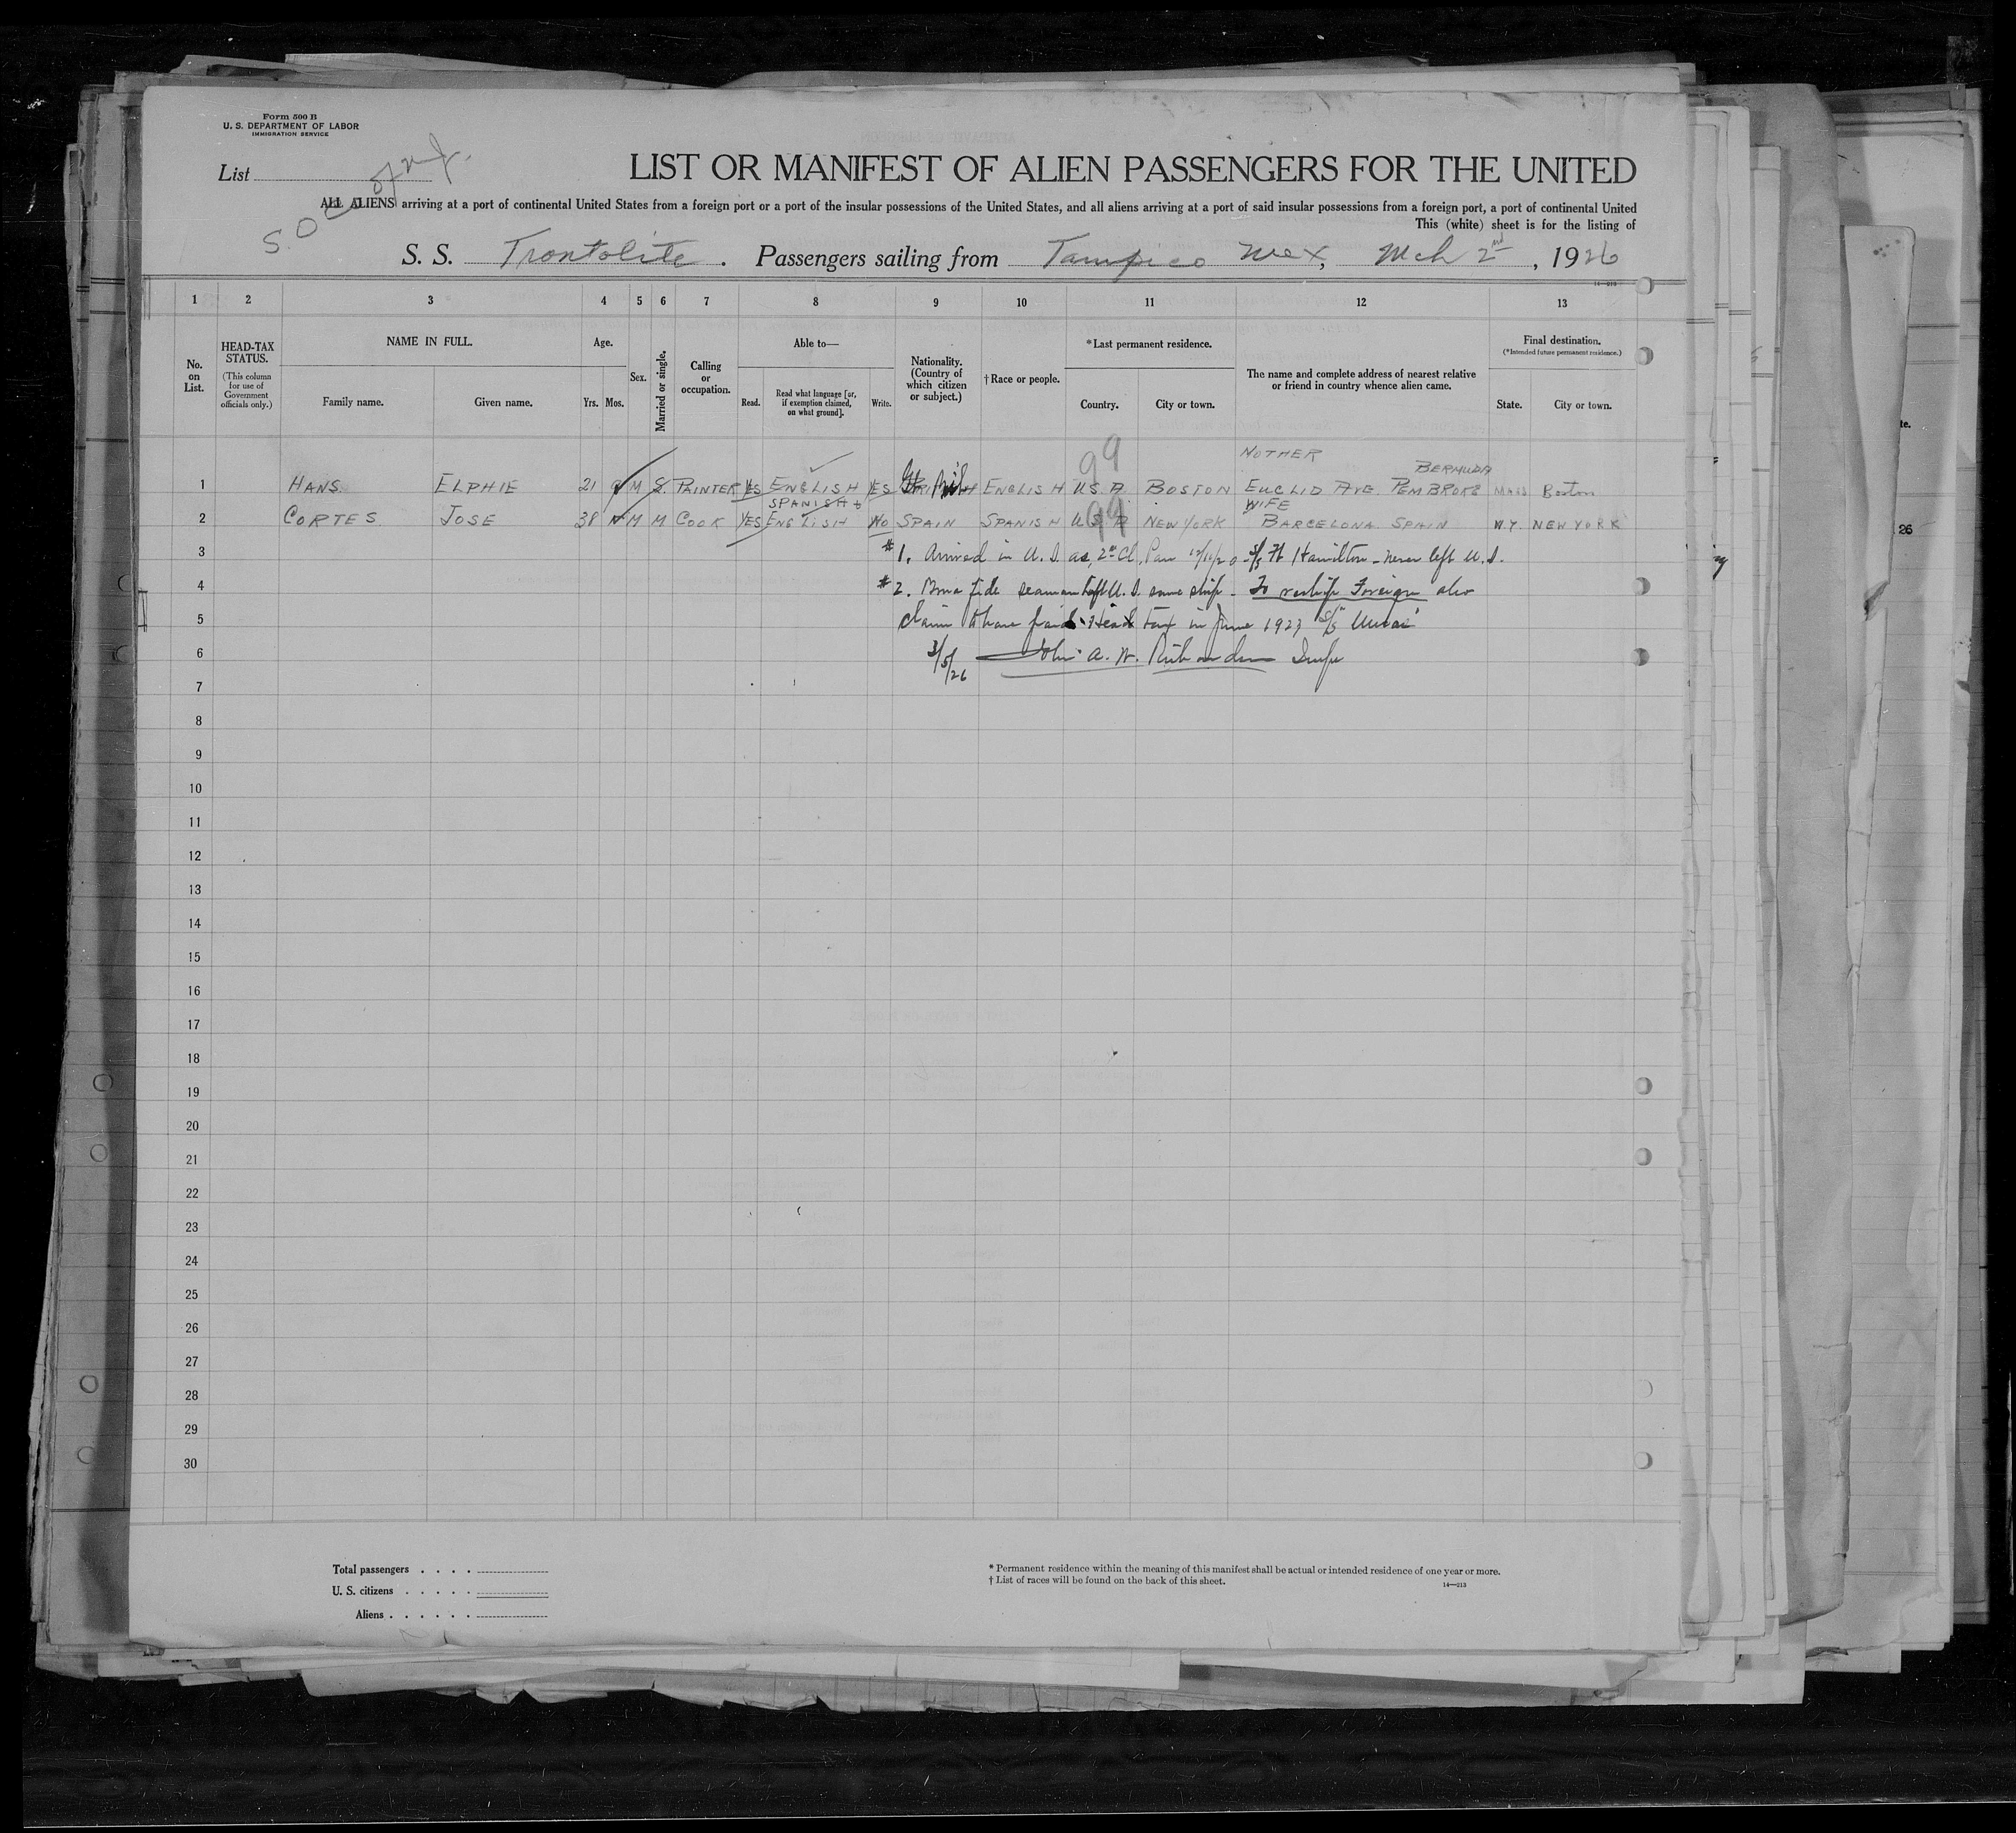 Form 500 B
U. S. DEPARTMENT OF LABOR
IMMIGRATION SERVICE
List
S. O. Co of N.J.
LIST OR MANIFEST OF ALIEN PASSENGERS FOR THE UNITED
ALL ALIENS arriving at a port of continental United States from a foreign port or a port of the insular possessions of the United States, and all aliens arriving at a port of said insular possessions from a foreign port, a port of continental United
This (white) sheet is for the listing of
S. S. Trontolite . Passengers sailing from Tampico Mex, Mch 2nd , 1926
14—213
1 2 3 4 5 6 7 8 9 10 11 12 13
No. on List.
HEAD-TAX STATUS. (This column for use of Government officials only.)
NAME IN FULL.
Family name. Given name.
Age.
Yrs. Mos.
Sex.
Married or single.
Calling or occupation.
Able to—
Read. Read what language [or, if exemption claimed, on what ground]. Write.
Nationality. (Country of which citizen or subject.)
† Race or people.
*Last permanent residence.
Country. City or town.
The name and complete address of nearest relative or friend in country whence alien came.
Final destination.
(*Intended future permanent residence.)
State. City or town.
99
MOTHER
BERMUDA
1 HANS ELPHIE 21 M S. PAINTER YES ENGLISH YES ENGLISH U.S.A. BOSTON EUCLID AVE PEMBROKE MASS Boston
SPANISH +
WIFE
99
2 CORTES JOSE 38 M M COOK YES ENGLISH NO SPAIN SPANISH U.S.A. NEW YORK BARCELONA SPAIN N.Y. NEW YORK
3 #1. Arrived in U.S. as 2nd Cl. Pass S/S Ft Hamilton - never left U.S.
4 #2. Bona fide seaman left U.S. same ship - To reship Foreign also
5 claim to have paid Head tax in June 1923 S/S
6 3/5/26 John A. W. Richardson Inspr
7
8
9
10
11
12
13
14
15
16
17
18
19
20
21
22
23
24
25
26
27
28
29
30
Total passengers
U. S. citizens
Aliens
* Permanent residence within the meaning of this manifest shall be actual or intended residence of one year or more.
† List of races will be found on the back of this sheet.
14—213
te.
26